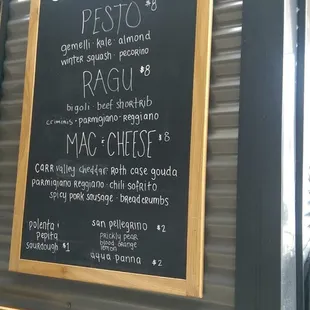 PESTO $8
gemelli · kale · almond
winter squash · pecorino
RAGU $8
bigoli · beef shortrib
criminis · parmigiano-reggiano
MAC + CHEESE $8
CARR valley cheddar · Roth case gouda
parmigiano reggiano · chili sofrito
spicy pork sausage · breadcrumbs
polenta +
pepita
sourdough $1
san pellegrino $2
prickly pear
blood orange
lemon
aqua panna $2